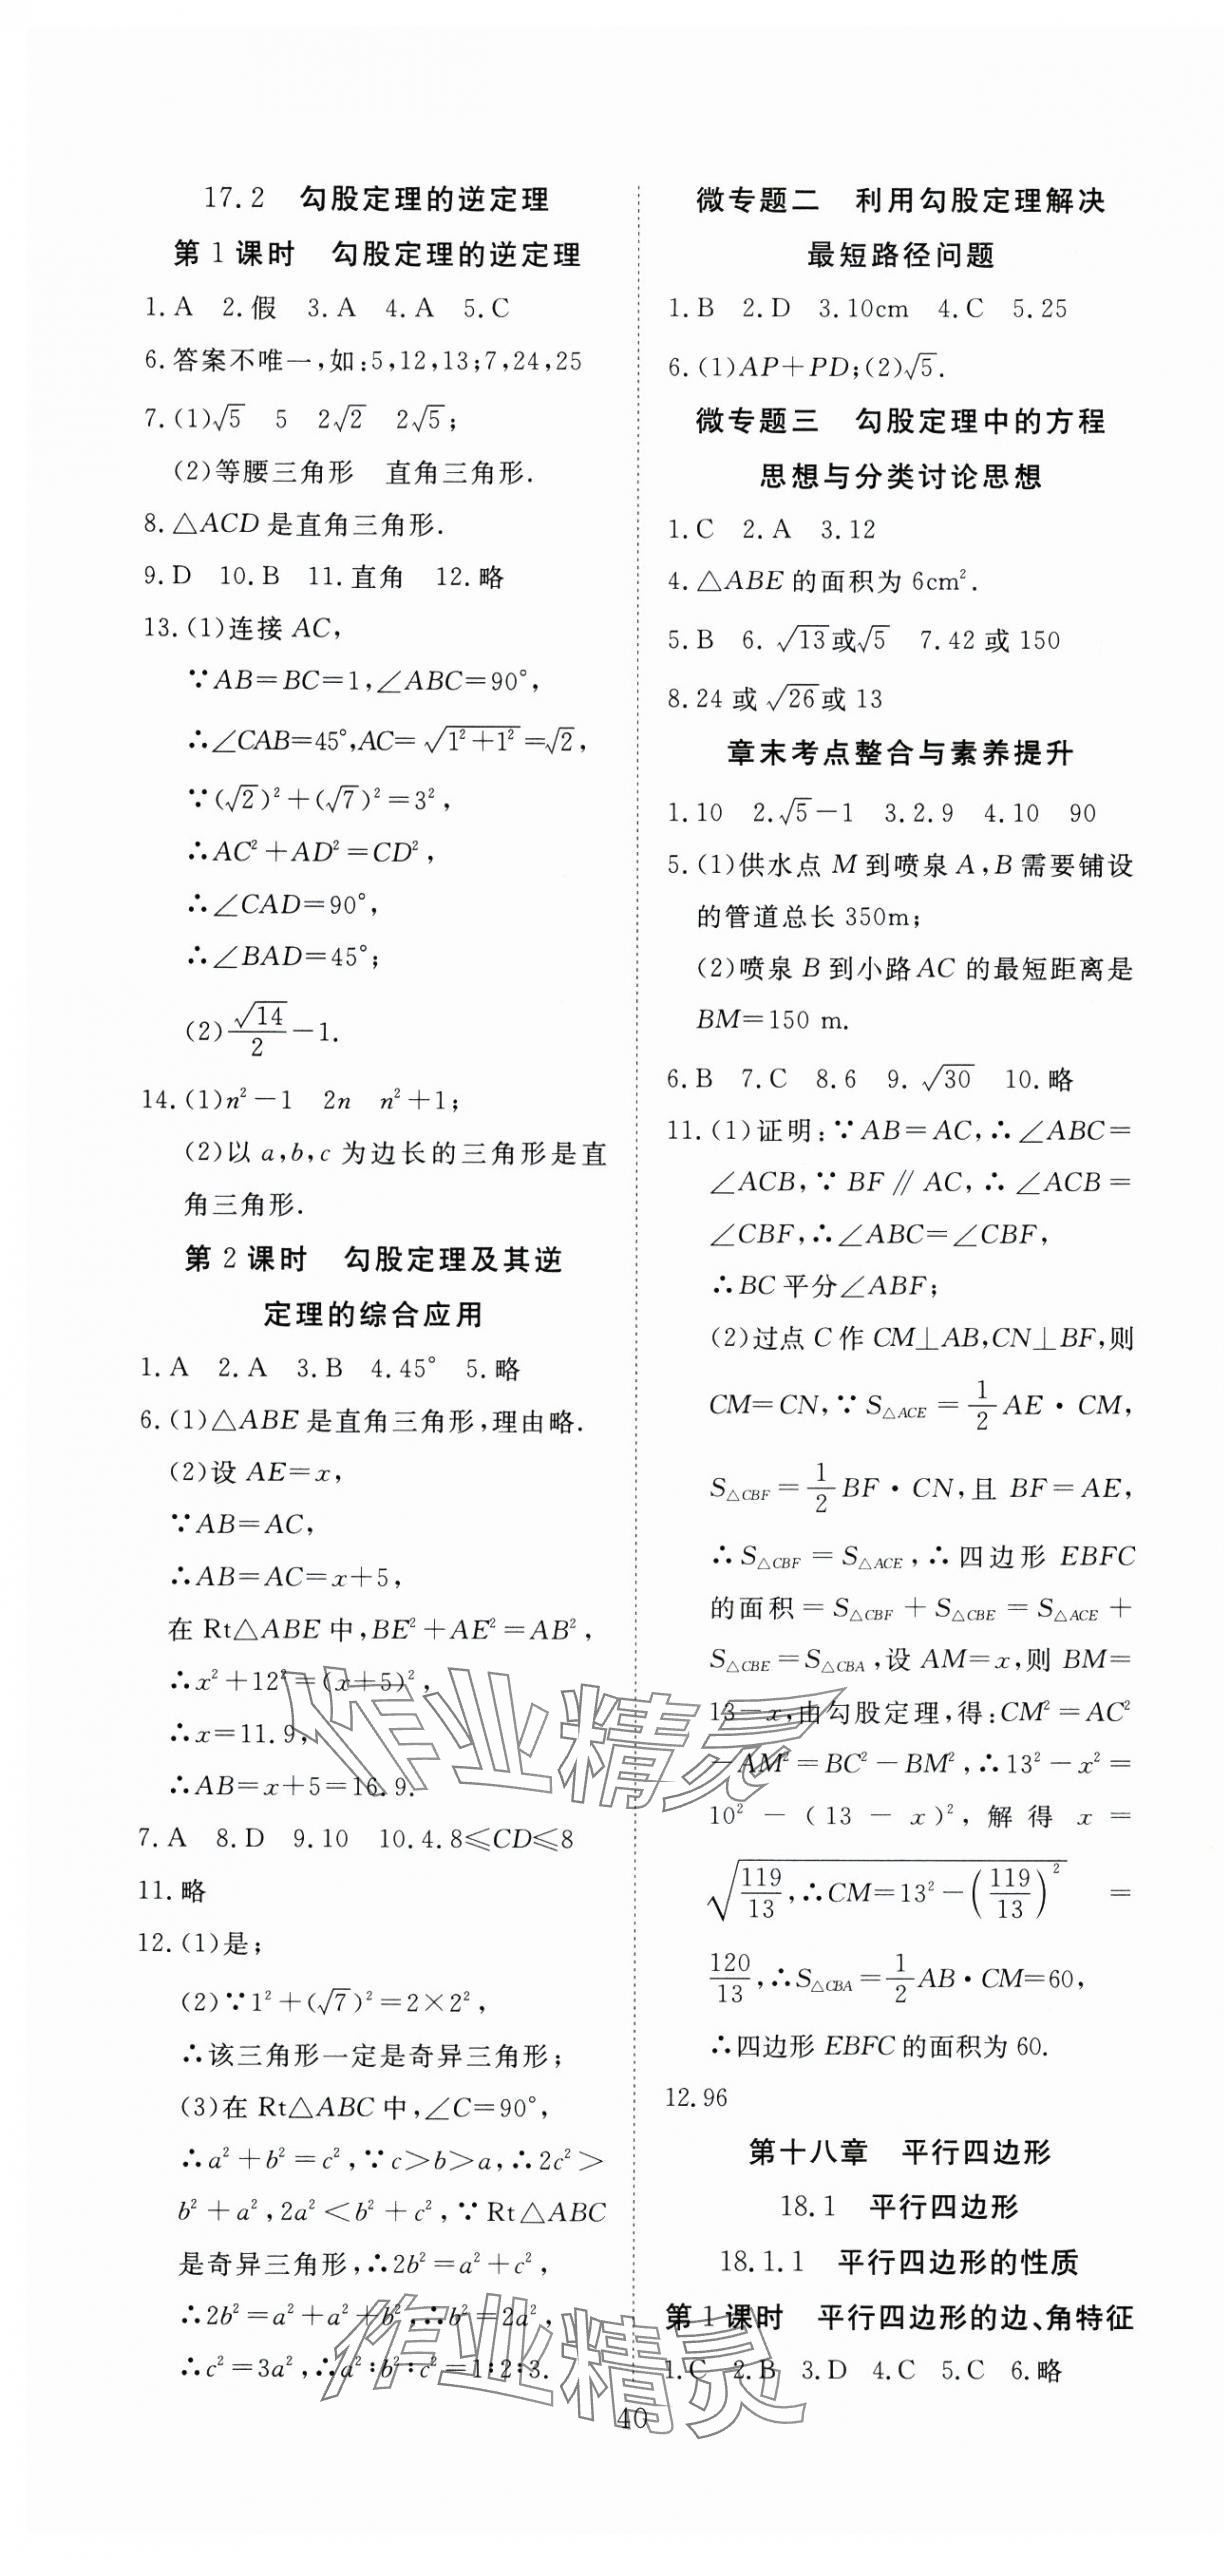 17.2 勾股定理的逆定理
第1课时 勾股定理的逆定理
1.A 2.假 3.A 4.A 5.C
6.答案不唯一,如:5,12,13;7,24,25
7.(1)√5 5 2√2 2√5;
(2)等腰三角形 直角三角形.
8.△ACD是直角三角形.
9.D 10.B 11.直角 12.略
13.(1)连接AC,
∵AB=BC=1,∠ABC=90°,
∴∠CAB=45°,AC=√(1²+1²)=√2,
∵(√2)²+(√7)²=3²,
∴AC²+AD²=CD²,
∴∠CAD=90°,
∴∠BAD=45°;
(2)√14/2-1.
14.(1)n²-1 2n n²+1;
(2)以a,b,c为边长的三角形是直
角三角形.
第2课时 勾股定理及其逆
定理的综合应用
1.A 2.A 3.B 4.45° 5.略
6.(1)△ABE是直角三角形,理由略.
(2)设AE=x,
∵AB=AC,
∴AB=AC=x+5,
在Rt△ABE中,BE²+AE²=AB²,
∴x²+12²=(x+5)²,
∴x=11.9,
∴AB=x+5=16.9.
7.A 8.D 9.10 10.4.8≤CD≤8
11.略
12.(1)是;
(2)∵1²+(√7)²=2×2²,
∴该三角形一定是奇异三角形;
(3)在Rt△ABC中,∠C=90°,
∴a²+b²=c²,∵c>b>a,∴2c²>
b²+a²,2a²<b²+c²,∵Rt△ABC
是奇异三角形,∴2b²=a²+c²,
∴2b²=a²+a²+b²,∴b²=2a²,
∴c²=3a²,∴a²:b²:c²=1:2:3.
微专题二 利用勾股定理解决
最短路径问题
1.B 2.D 3.10cm 4.C 5.25
6.(1)AP+PD;(2)√5.
微专题三 勾股定理中的方程
思想与分类讨论思想
1.C 2.A 3.12
4.△ABE的面积为6cm².
5.B 6.√13或√5 7.42或150
8.24或√26或13
章末考点整合与素养提升
1.10 2.√5-1 3.2.9 4.10 90
5.(1)供水点M到喷泉A,B需要铺设
的管道总长350m;
(2)喷泉B到小路AC的最短距离是
BM=150 m.
6.B 7.C 8.6 9.√30 10.略
11.(1)证明:∵AB=AC,∴∠ABC=
∠ACB,∵BF∥AC,∴∠ACB=
∠CBF,∴∠ABC=∠CBF,
∴BC平分∠ABF;
(2)过点C作CM⊥AB,CN⊥BF,则
CM=CN,∵S△ACE=1/2AE·CM,
S△CBF=1/2BF·CN,且BF=AE,
∴S△CBF=S△ACE,∴四边形EBFC
的面积=S△CBF+S△CBE=S△ACE+
S△CBE=S△CBA,设AM=x,则BM=
13-x,由勾股定理,得:CM²=AC²
-AM²=BC²-BM²,∴13²-x²=
10²-(13-x)²,解得x=
√(119/13,∴CM=13²-(119/13)²)=
120/13,∴S△CBA=1/2AB·CM=60,
∴四边形EBFC的面积为60.
12.96
第十八章 平行四边形
18.1 平行四边形
18.1.1 平行四边形的性质
第1课时 平行四边形的边、角特征
1.C 2.B 3.D 4.C 5.C 6.略
40
作业精灵
作业精灵